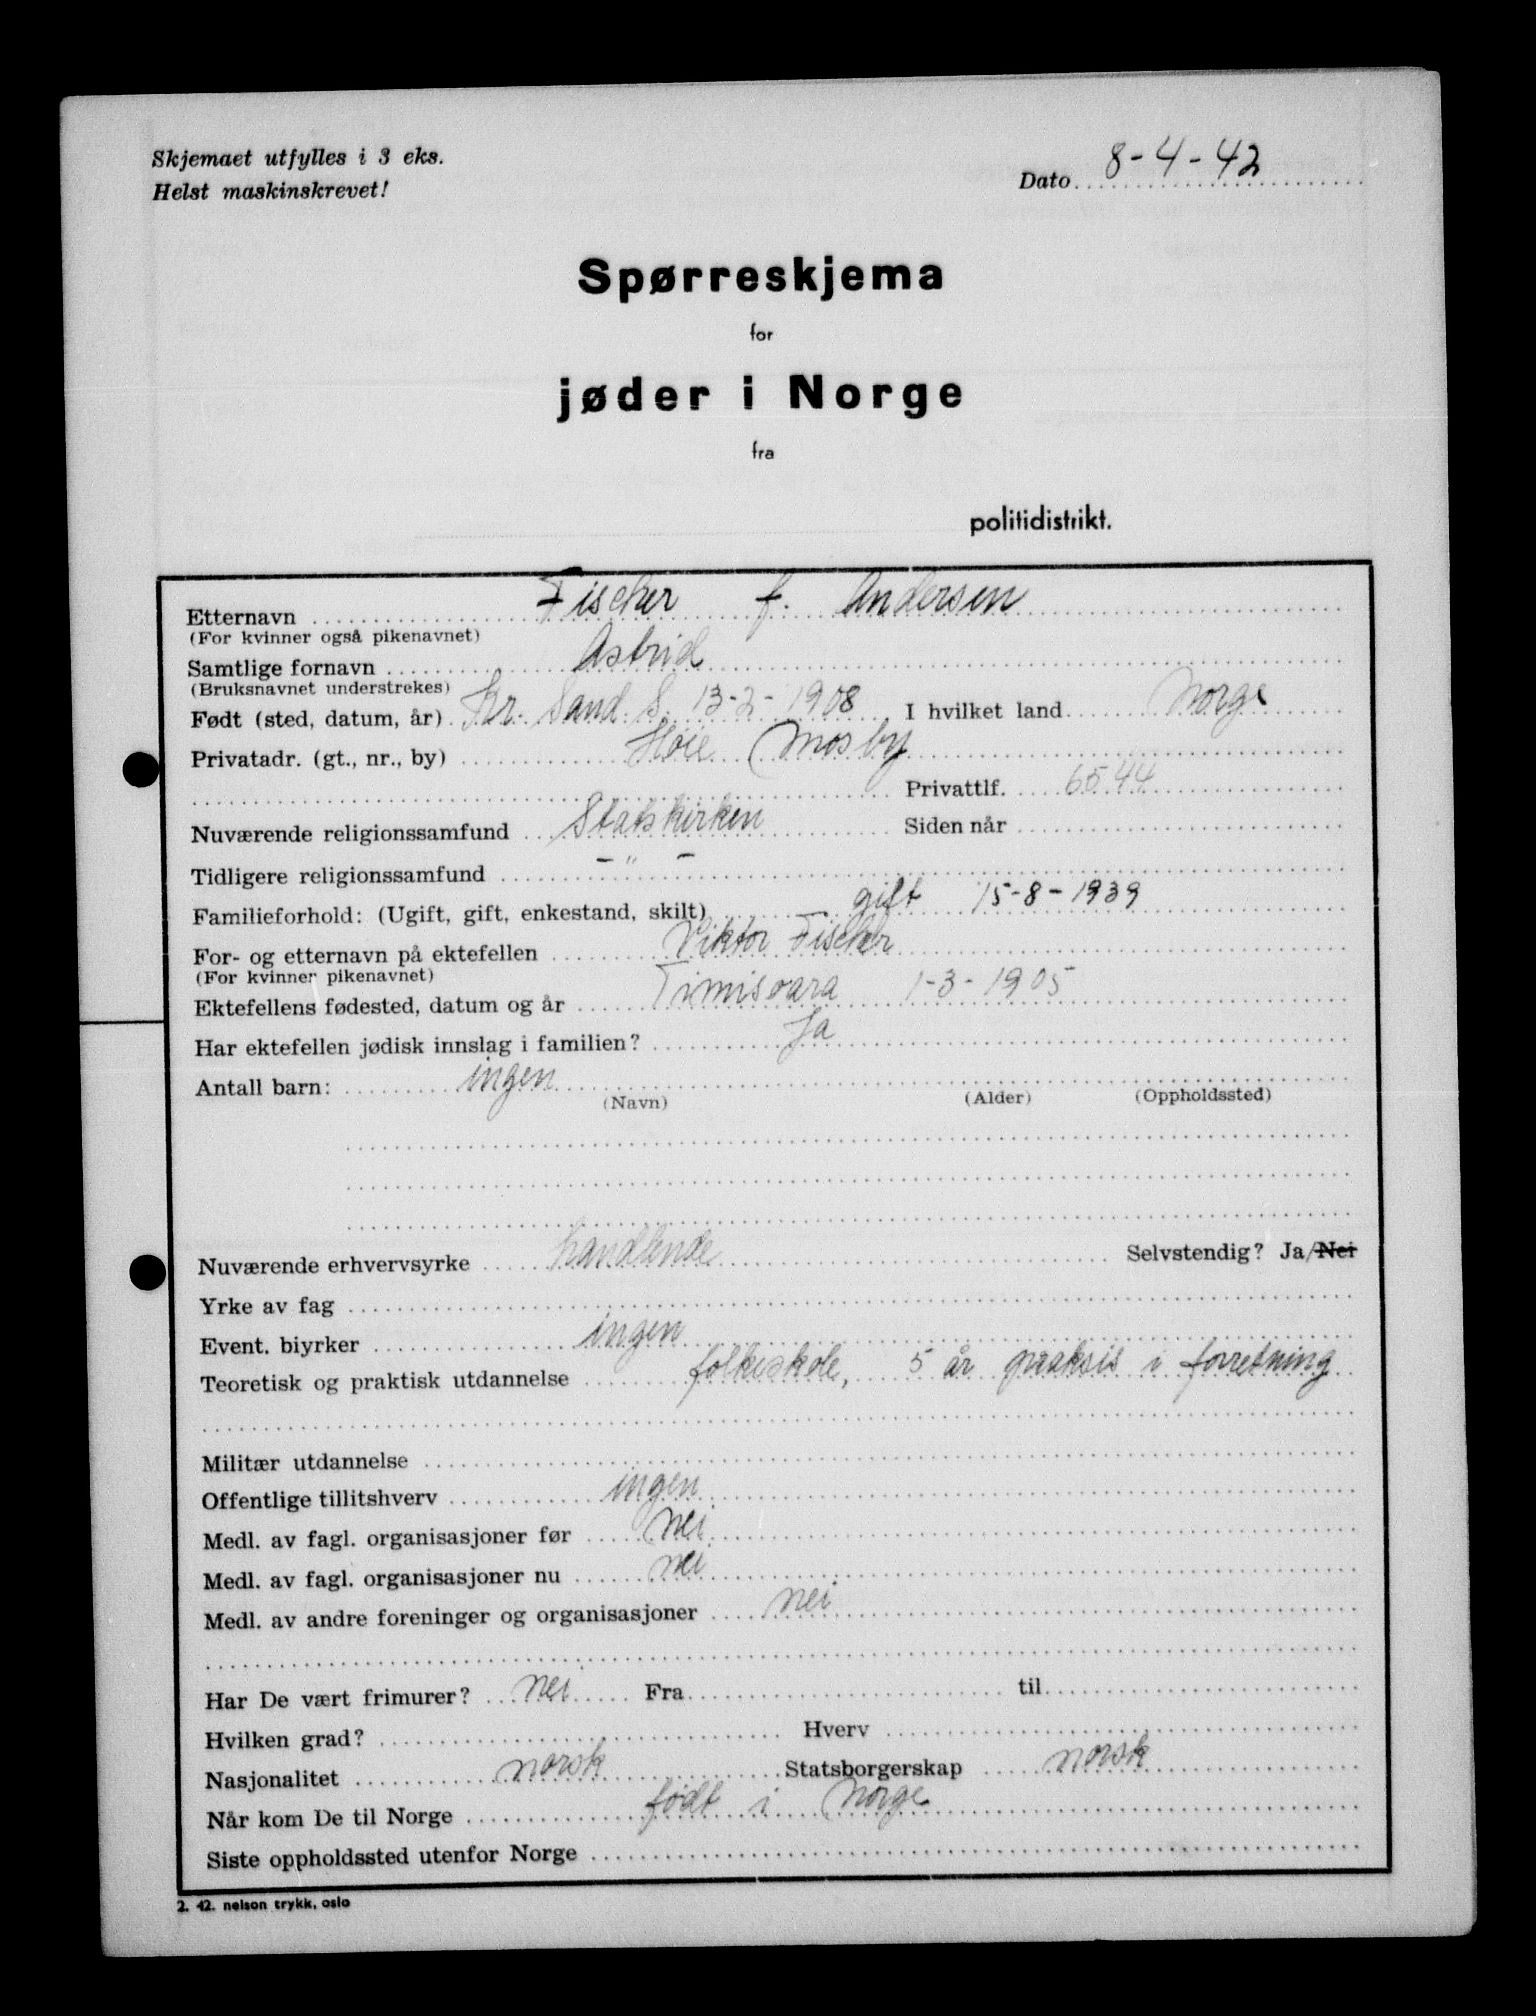 Skjemaet utfylles i 3 eks.
Helst maskinskrevet!
Dato 8-4-42
Spørreskjema
for
jøder i Norge
fra
politidistrikt.
Etternavn Fischer f. Andersen
(For kvinner også pikenavnet)
Samtlige fornavn Astrid
(Bruksnavnet understrekes)
Født (sted, datum, år) Kr. Sand. S. 13-2-1908 I hvilket land Norge
Privatadr. (gt., nr., by) Høie Mosby
Privattlf. 6544
Nuværende religionssamfund Statskirken Siden når
Tidligere religionssamfund — " —
Familieforhold: (Ugift, gift, enkestand, skilt) gift 15-8-1939
For- og etternavn på ektefellen Viktor Fischer
(For kvinner pikenavnet)
Ektefellens fødested, datum og år Timisoara 1-3-1905
Har ektefellen jødisk innslag i familien? Ja
Antall barn: ingen
(Navn) (Alder) (Oppholdssted)
Nuværende erhvervsyrke handlende Selvstendig? Ja/Nei
Yrke av fag
Event. biyrker ingen
Teoretisk og praktisk utdannelse folkeskole, 5 år praksis i forretning
Militær utdannelse
Offentlige tillitshverv ingen
Medl. av fagl. organisasjoner før nei
Medl. av fagl. organisasjoner nu nei
Medl. av andre foreninger og organisasjoner nei
Har De vært frimurer? nei Fra til
Hvilken grad? Hverv
Nasjonalitet norsk Statsborgerskap norsk
Når kom De til Norge født i Norge
Siste oppholdssted utenfor Norge
2. 42. nelson trykk, oslo